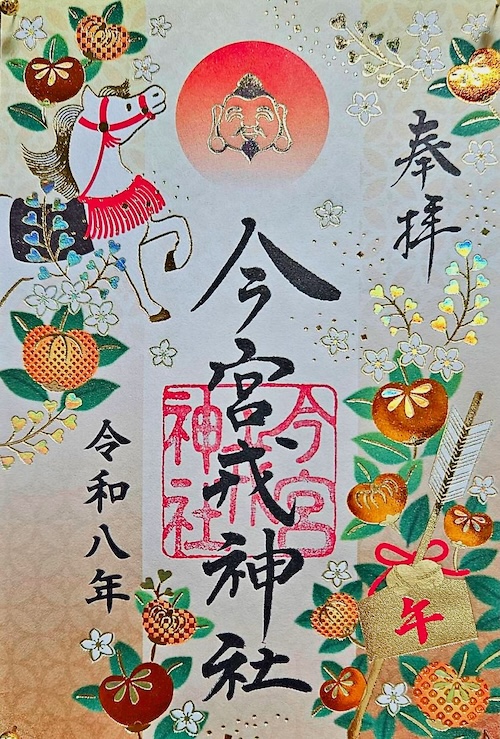 奉拝
今宮戎神社
今宮戎神社
令和八年
午